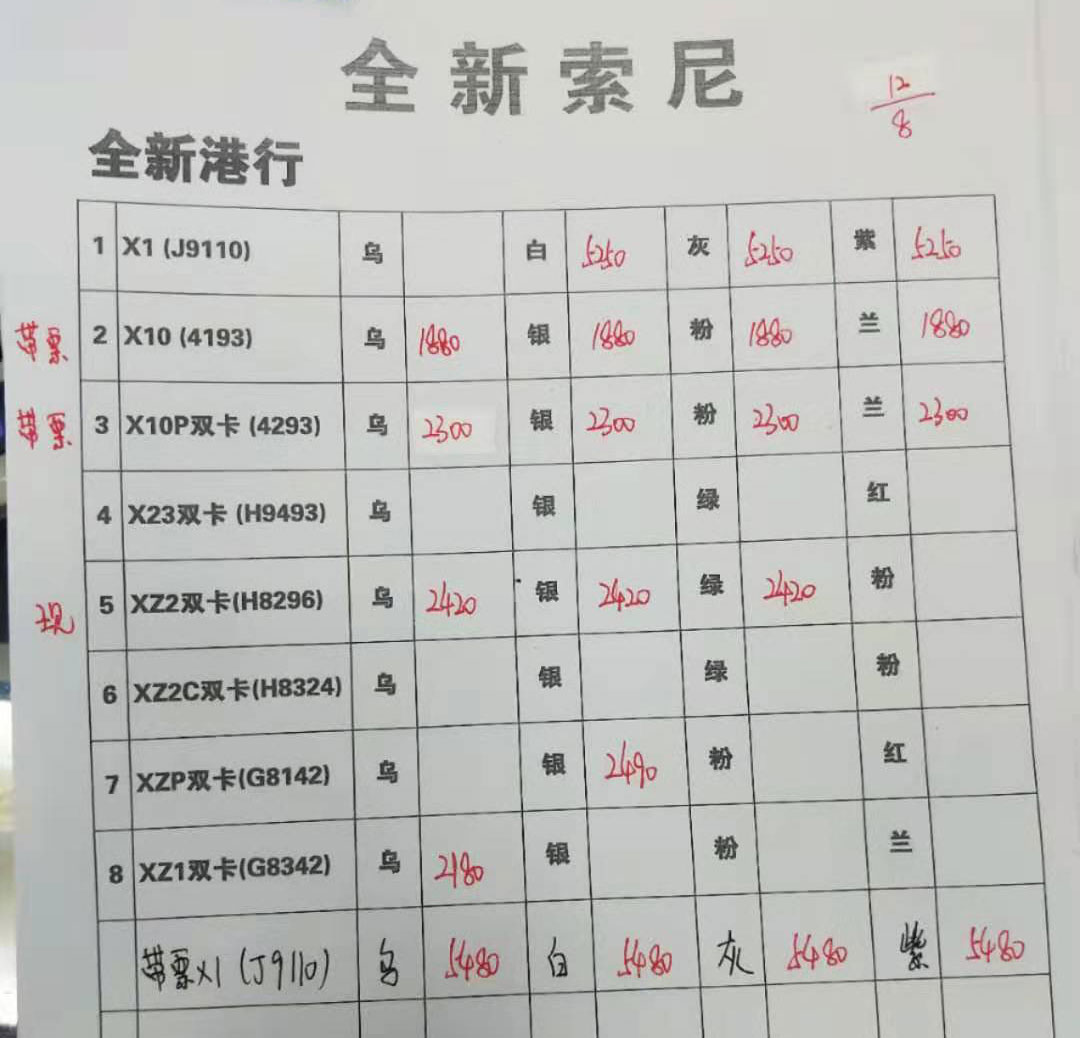 全新索尼
12/8
全新港行
1 X1 (J9110) 乌 白 5250 灰 5250 紫 5250
带票 2 X10 (4193) 乌 1880 银 1880 粉 1880 兰 1880
带票 3 X10P双卡 (4293) 乌 2300 银 2300 粉 2300 兰 2300
4 X23双卡 (H9493) 乌 银 绿 红
现 5 XZ2双卡(H8296) 乌 2420 银 2420 绿 2420 粉
6 XZ2C双卡(H8324) 乌 银 绿 粉
7 XZP双卡(G8142) 乌 银 2490 粉 红
8 XZ1双卡(G8342) 乌 2180 银 粉 兰
带票X1 (J9110) 乌 5480 白 5480 灰 5480 紫 5480